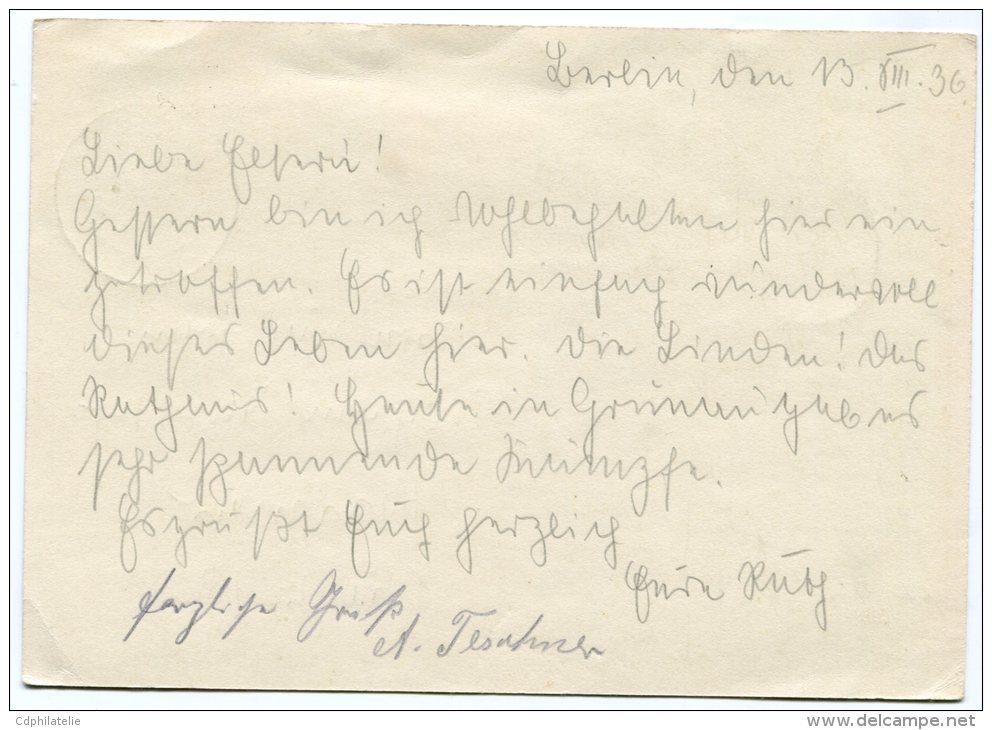 Berlin, den 13. VIII. 36.
Liebe Eltern!
Gestern bin ich wohlbehalten hier ein
getroffen. Es ist einfach wundervoll
dieses Leben hier. Die Linden! Das
Rathaus! Heute in Grünau gab es
sehr spannende Kämpfe.
Es grüßt Euch herzlich
Eure Ruth
Herzliche Grüße
A. Teschner
Cdphilatelie
www.delcampe.net